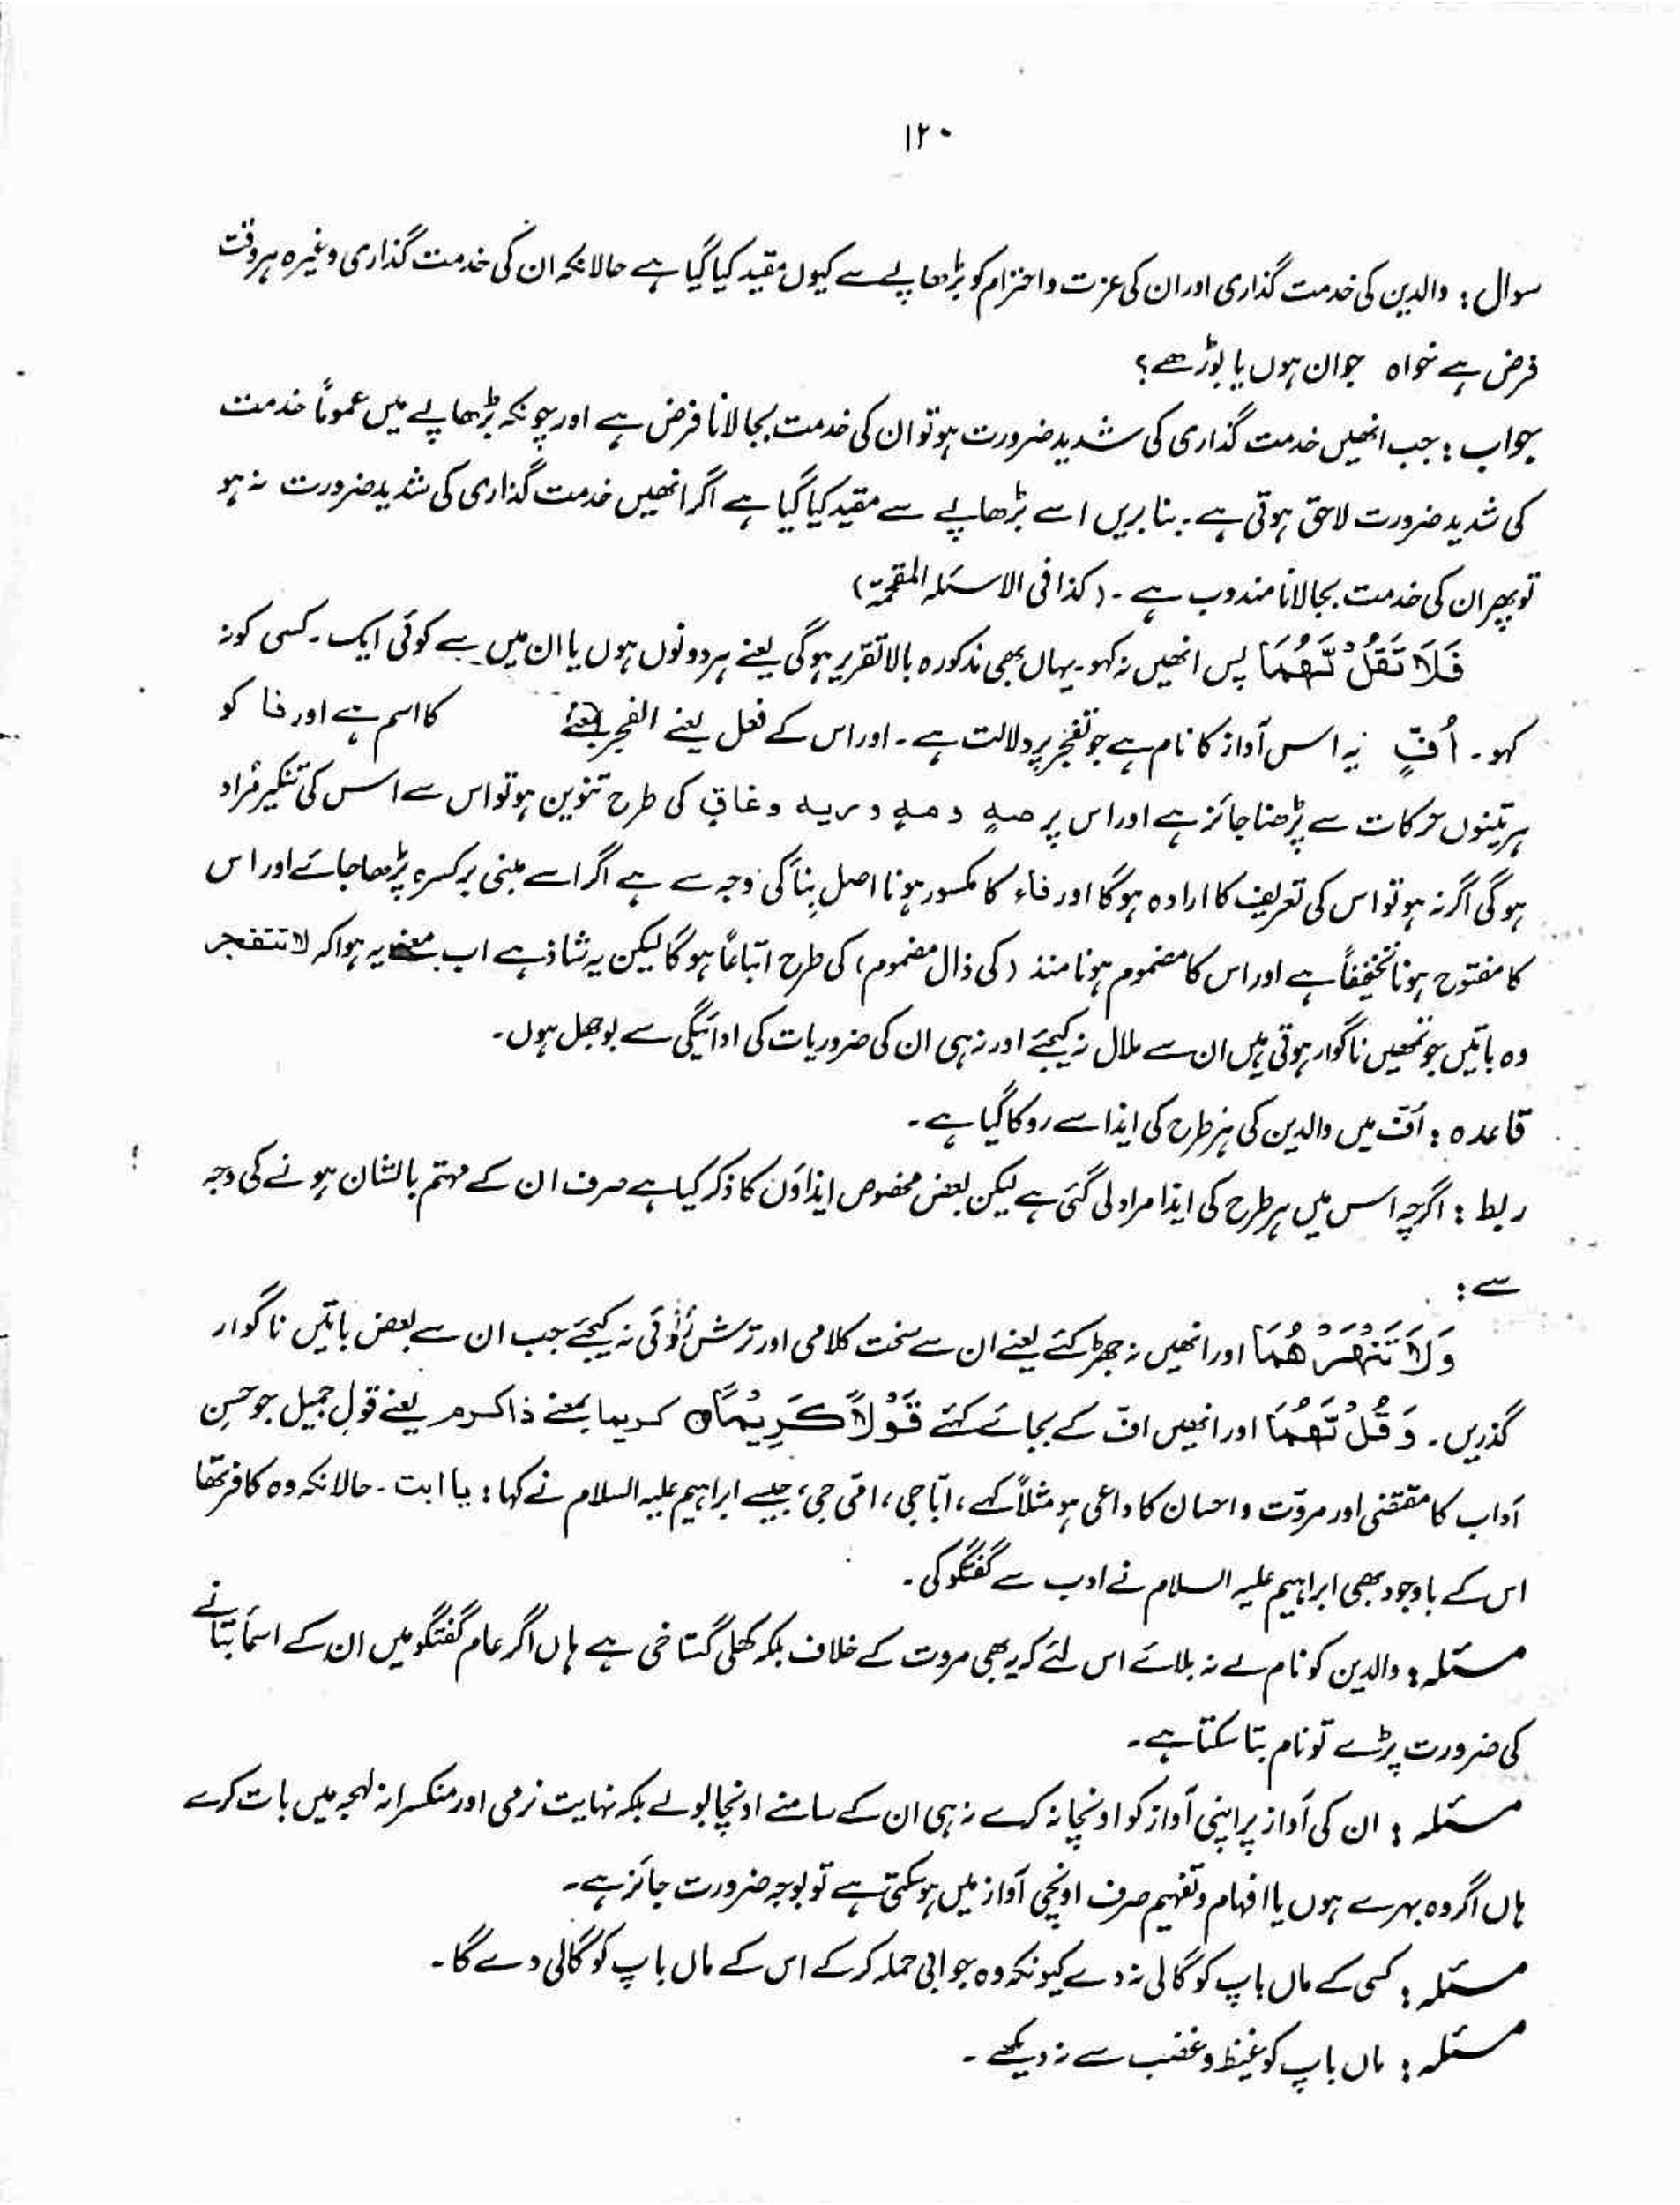 ۱۲۰
سوال : والدین کی خدمت گذاری اور ان کی عزت و احترام کو بڑھاپے سے کیوں مقید کیا گیا ہے حالانکہ ان کی خدمت گذاری وغیرہ ہر وقت
فرض ہے خواہ جوان ہوں یا بوڑھے؟
جواب : جب انھیں خدمت گذاری کی شدید ضرورت ہو تو ان کی خدمت بجا لانا فرض ہے اور چونکہ بڑھاپے میں عموماً خدمت
کی شدید ضرورت لاحق ہوتی ہے۔ بنا بریں اسے بڑھاپے سے مقید کیا گیا ہے اگر انھیں خدمت گذاری کی شدید ضرورت نہ ہو
تو پھر ان کی خدمت بجا لانا مندوب ہے۔ (کذا فی الاسئلہ المقحمۃ)
فَلَا تَقُلْ لَّهُمَا پس انھیں نہ کہو۔ یہاں بھی مذکورہ بالا تقریر ہوگی یعنے ہر دونوں ہوں یا ان میں سے کوئی ایک۔ کسی کو نہ
کہو۔ اُفٍّ یہ اس آواز کا نام ہے جو تفجر پر دلالت ہے۔ اور اس کے فعل یعنے الفجر کا اسم ہے اور فا کو
ہر تینوں حرکات سے پڑھنا جائز ہے اور اس پر صہٍ و مہٍ و ریہ و غاقٍ کی طرح تنوین ہو تو اس سے اس کی تنکیر مراد
ہوگی اگر نہ ہو تو اس کی تعریف کا ارادہ ہوگا اور فاء کا مکسور ہونا اصل بِنا کی وجہ سے ہے اگر اسے مبنی بر کسرہ پڑھا جائے اور اس
کا مفتوح ہونا تخفیفاً ہے اور اس کا مضموم ہونا منذ (کی ذال مضموم) کی طرح اتباعاً ہوگا لیکن یہ شاذ ہے اب معنے یہ ہوا کہ لا تتفجر
وہ باتیں جو تمھیں ناگوار ہوتی ہیں ان سے ملال نہ کیجئے اور نہ ہی ان کی ضروریات کی ادائیگی سے بوجھل ہوں۔
قاعدہ : اُفّ میں والدین کی ہر طرح کی ایذا سے روکا گیا ہے۔
ربط : اگرچہ اس میں ہر طرح کی ایذا مراد لی گئی ہے لیکن بعض مخصوص ایذاؤں کا ذکر کیا ہے صرف ان کے مہتم بالشان ہونے کی وجہ
سے :
وَلَا تَنْهَرْهُمَا اور انھیں نہ جھڑکئے یعنے ان سے سخت کلامی اور ترش رُوئی نہ کیجئے جب ان سے بعض باتیں ناگوار
گذریں۔ وَقُلْ لَّهُمَا اور انھیں افّ کے بجائے کہئے قَوْلًا كَرِيْمًا۝ کریما بمعنے ذا کرم یعنے قول جمیل جو حسنِ
آداب کا مقتضی اور مروّت و احسان کا داعی ہو مثلاً کہے، ابّا جی، امّی جی، جیسے ابراہیم علیہ السلام نے کہا : یا ابت۔ حالانکہ وہ کافر تھا
اس کے باوجود بھی ابراہیم علیہ السلام نے ادب سے گفتگو کی۔
مسئلہ : والدین کو نام لے نہ بلائے اس لئے کہ یہ بھی مروت کے خلاف بلکہ کھلی گستاخی ہے ہاں اگر عام گفتگو میں ان کے اسماء بتانے
کی ضرورت پڑے تو نام بتا سکتا ہے۔
مسئلہ : ان کی آواز پر اپنی آواز کو اونچا نہ کرے نہ ہی ان کے سامنے اونچا بولے بلکہ نہایت نرمی اور منکسرانہ لہجہ میں بات کرے
ہاں اگر وہ بہرے ہوں یا افہام و تفہیم صرف اونچی آواز میں ہو سکتی ہے تو بوجہ ضرورت جائز ہے۔
مسئلہ : کسی کے ماں باپ کو گالی نہ دے کیونکہ وہ جوابی حملہ کر کے اس کے ماں باپ کو گالی دے گا۔
مسئلہ : ماں باپ کو غیظ و غضب سے نہ دیکھے۔